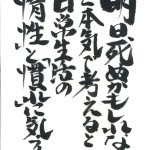 明日死ぬかもしれな
と本気で考えると
日常生活の
惰性と慣れに気え